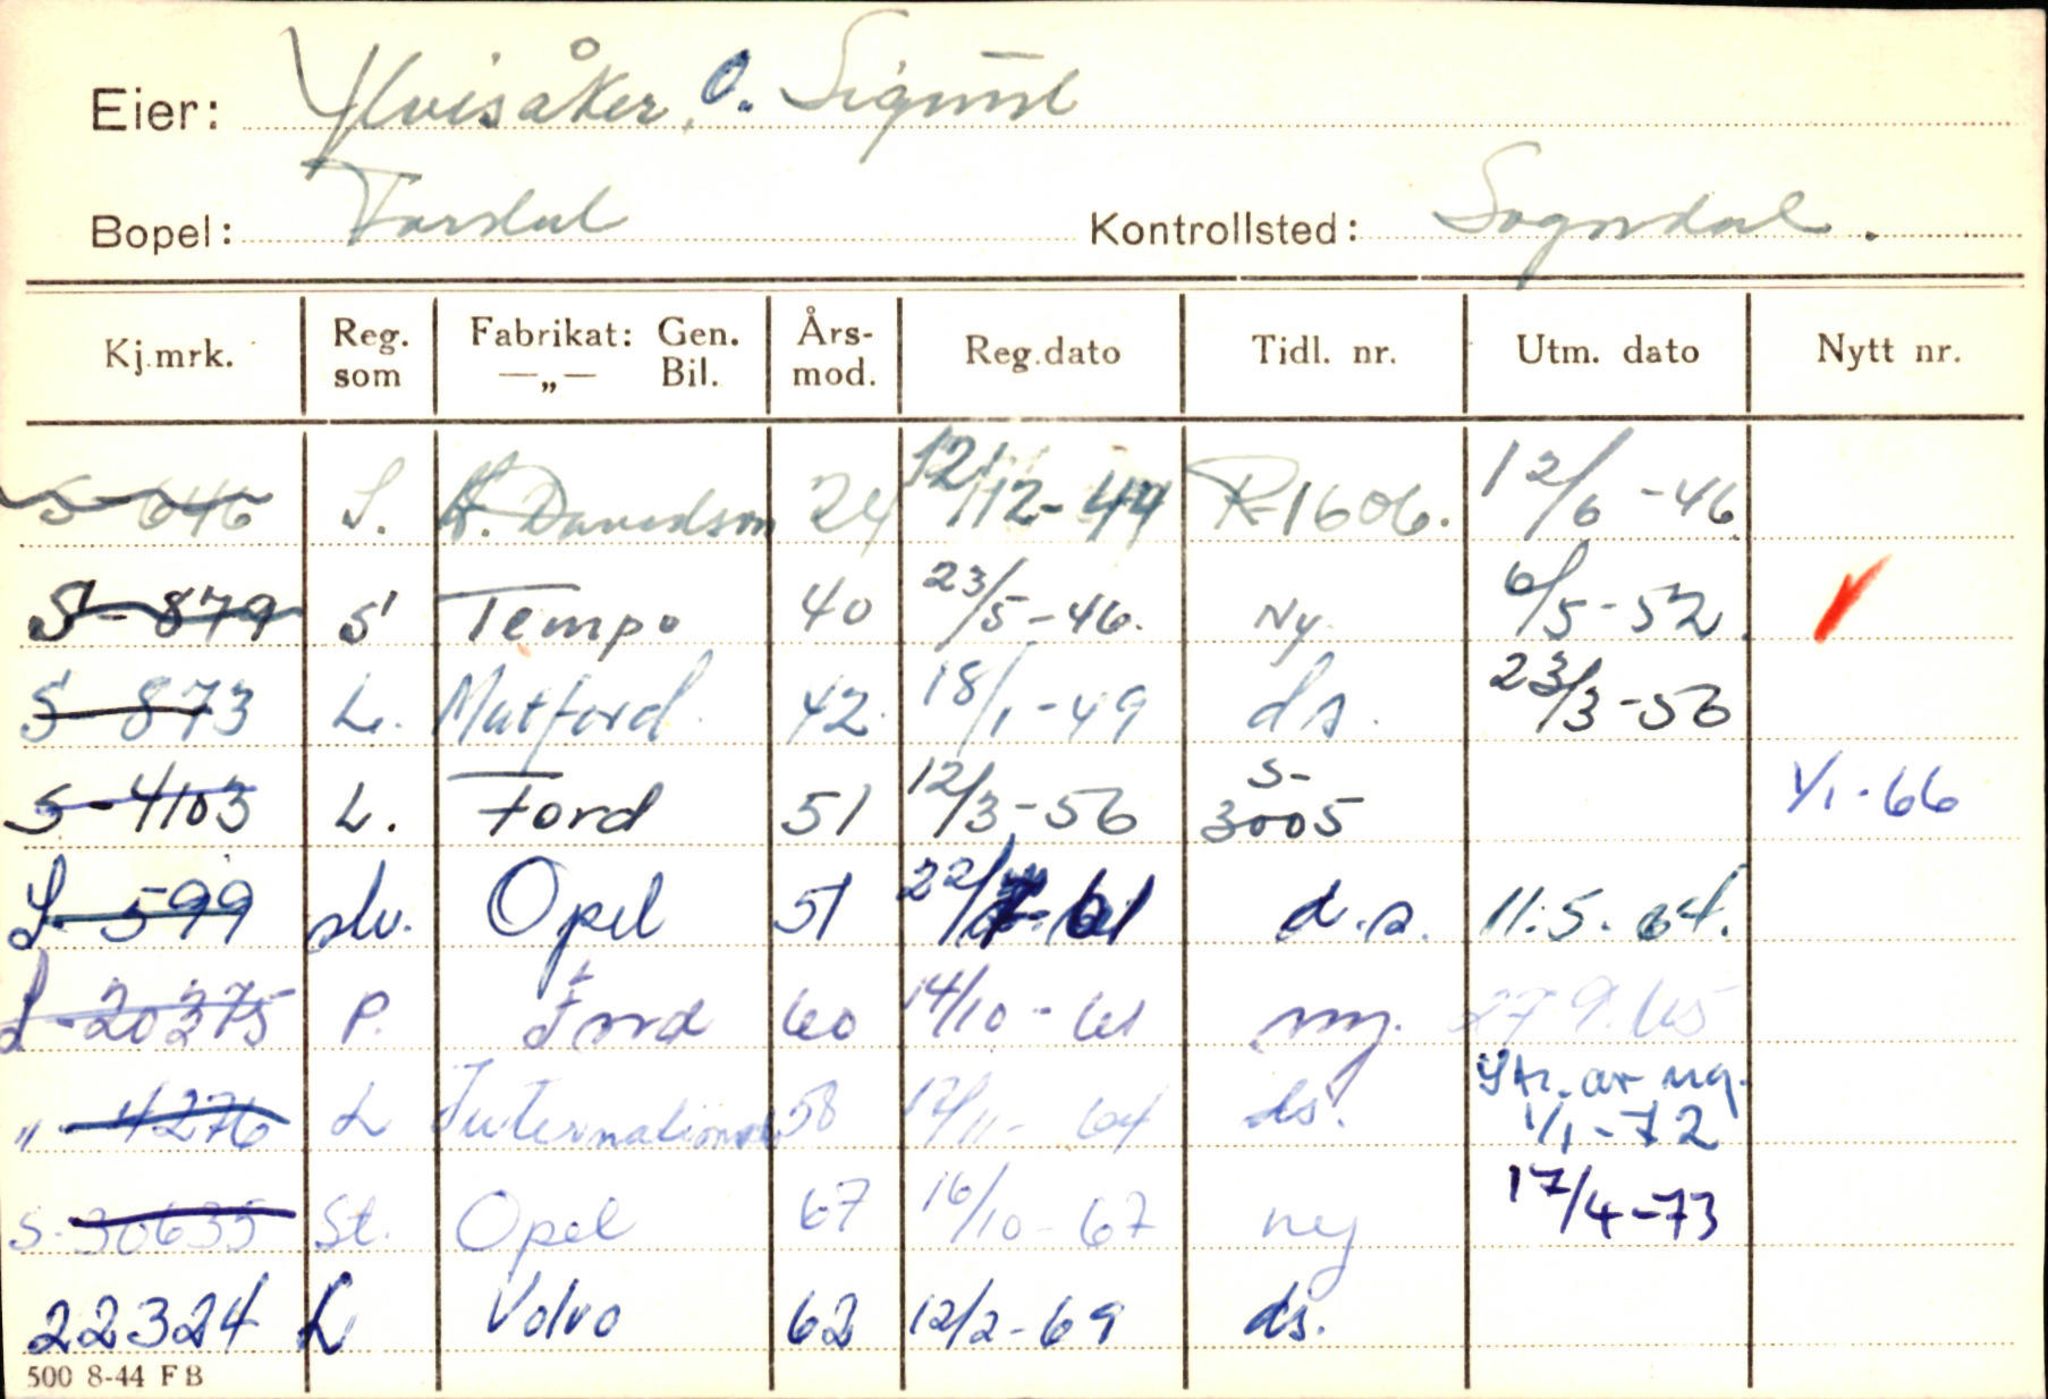 Eier: Ylvisåker, O. Sigurd
Bopel: Kontrollsted: Sogndal.
Kj.mrk. Reg. som Fabrikat: Gen. —„— Bil. Års- mod. Reg.dato Tidl. nr. Utm. dato Nytt nr.
S-646 S. H. Davidson 24 12/12-44 R-1606. 12/6-46
S-879 S Tempo 40 23/5-46. Ny. 6/5-52.
S-873 L. Matford 42. 18/1-49 ds. 23/3-56
S-4103 L. Ford 51 12/3-56 S-3005 1/1-66
S-599 stv. Opel 51 22/7-61 d.s. 11.5.64.
S-20375 P. Ford 60 14/10-61 ny. 27.9.65
„ 4276 L International 58 12/11-64 ds. Str. av reg. 1/1-72
S-30635 St. Opel 67 16/10-67 ny 17/4-73
22324 L Volvo 62 12/2-69 ds.
500 8-44 FB